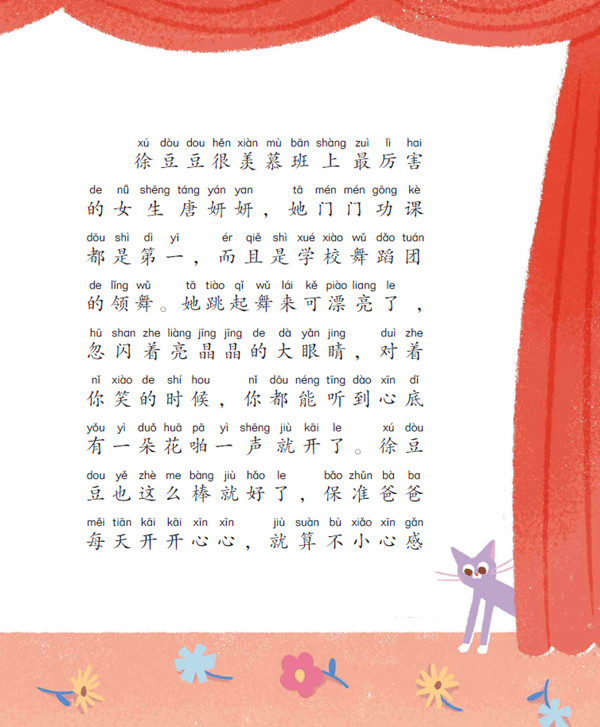 xú dòu dou hěn xiàn mù bān shàng zuì lì hai
徐豆豆很羡慕班上最厉害
de nǚ shēng táng yán yan tā mén mén gōng kè
的女生唐妍妍，她门门功课
dōu shì dì yī ér qiě shì xué xiào wǔ dǎo tuán
都是第一，而且是学校舞蹈团
de lǐng wǔ tā tiào qǐ wǔ lái kě piào liang le
的领舞。她跳起舞来可漂亮了，
hū shan zhe liàng jīng jīng de dà yǎn jing duì zhe
忽闪着亮晶晶的大眼睛，对着
nǐ xiào de shí hou nǐ dōu néng tīng dào xīn dǐ
你笑的时候，你都能听到心底
yǒu yì duǒ huā pā yì shēng jiù kāi le xú dòu
有一朵花啪一声就开了。徐豆
dou yě zhè me bàng jiù hǎo le bǎo zhǔn bà ba
豆也这么棒就好了，保准爸爸
měi tiān kāi kāi xīn xīn jiù suàn bù xiǎo xīn gǎn
每天开开心心，就算不小心感